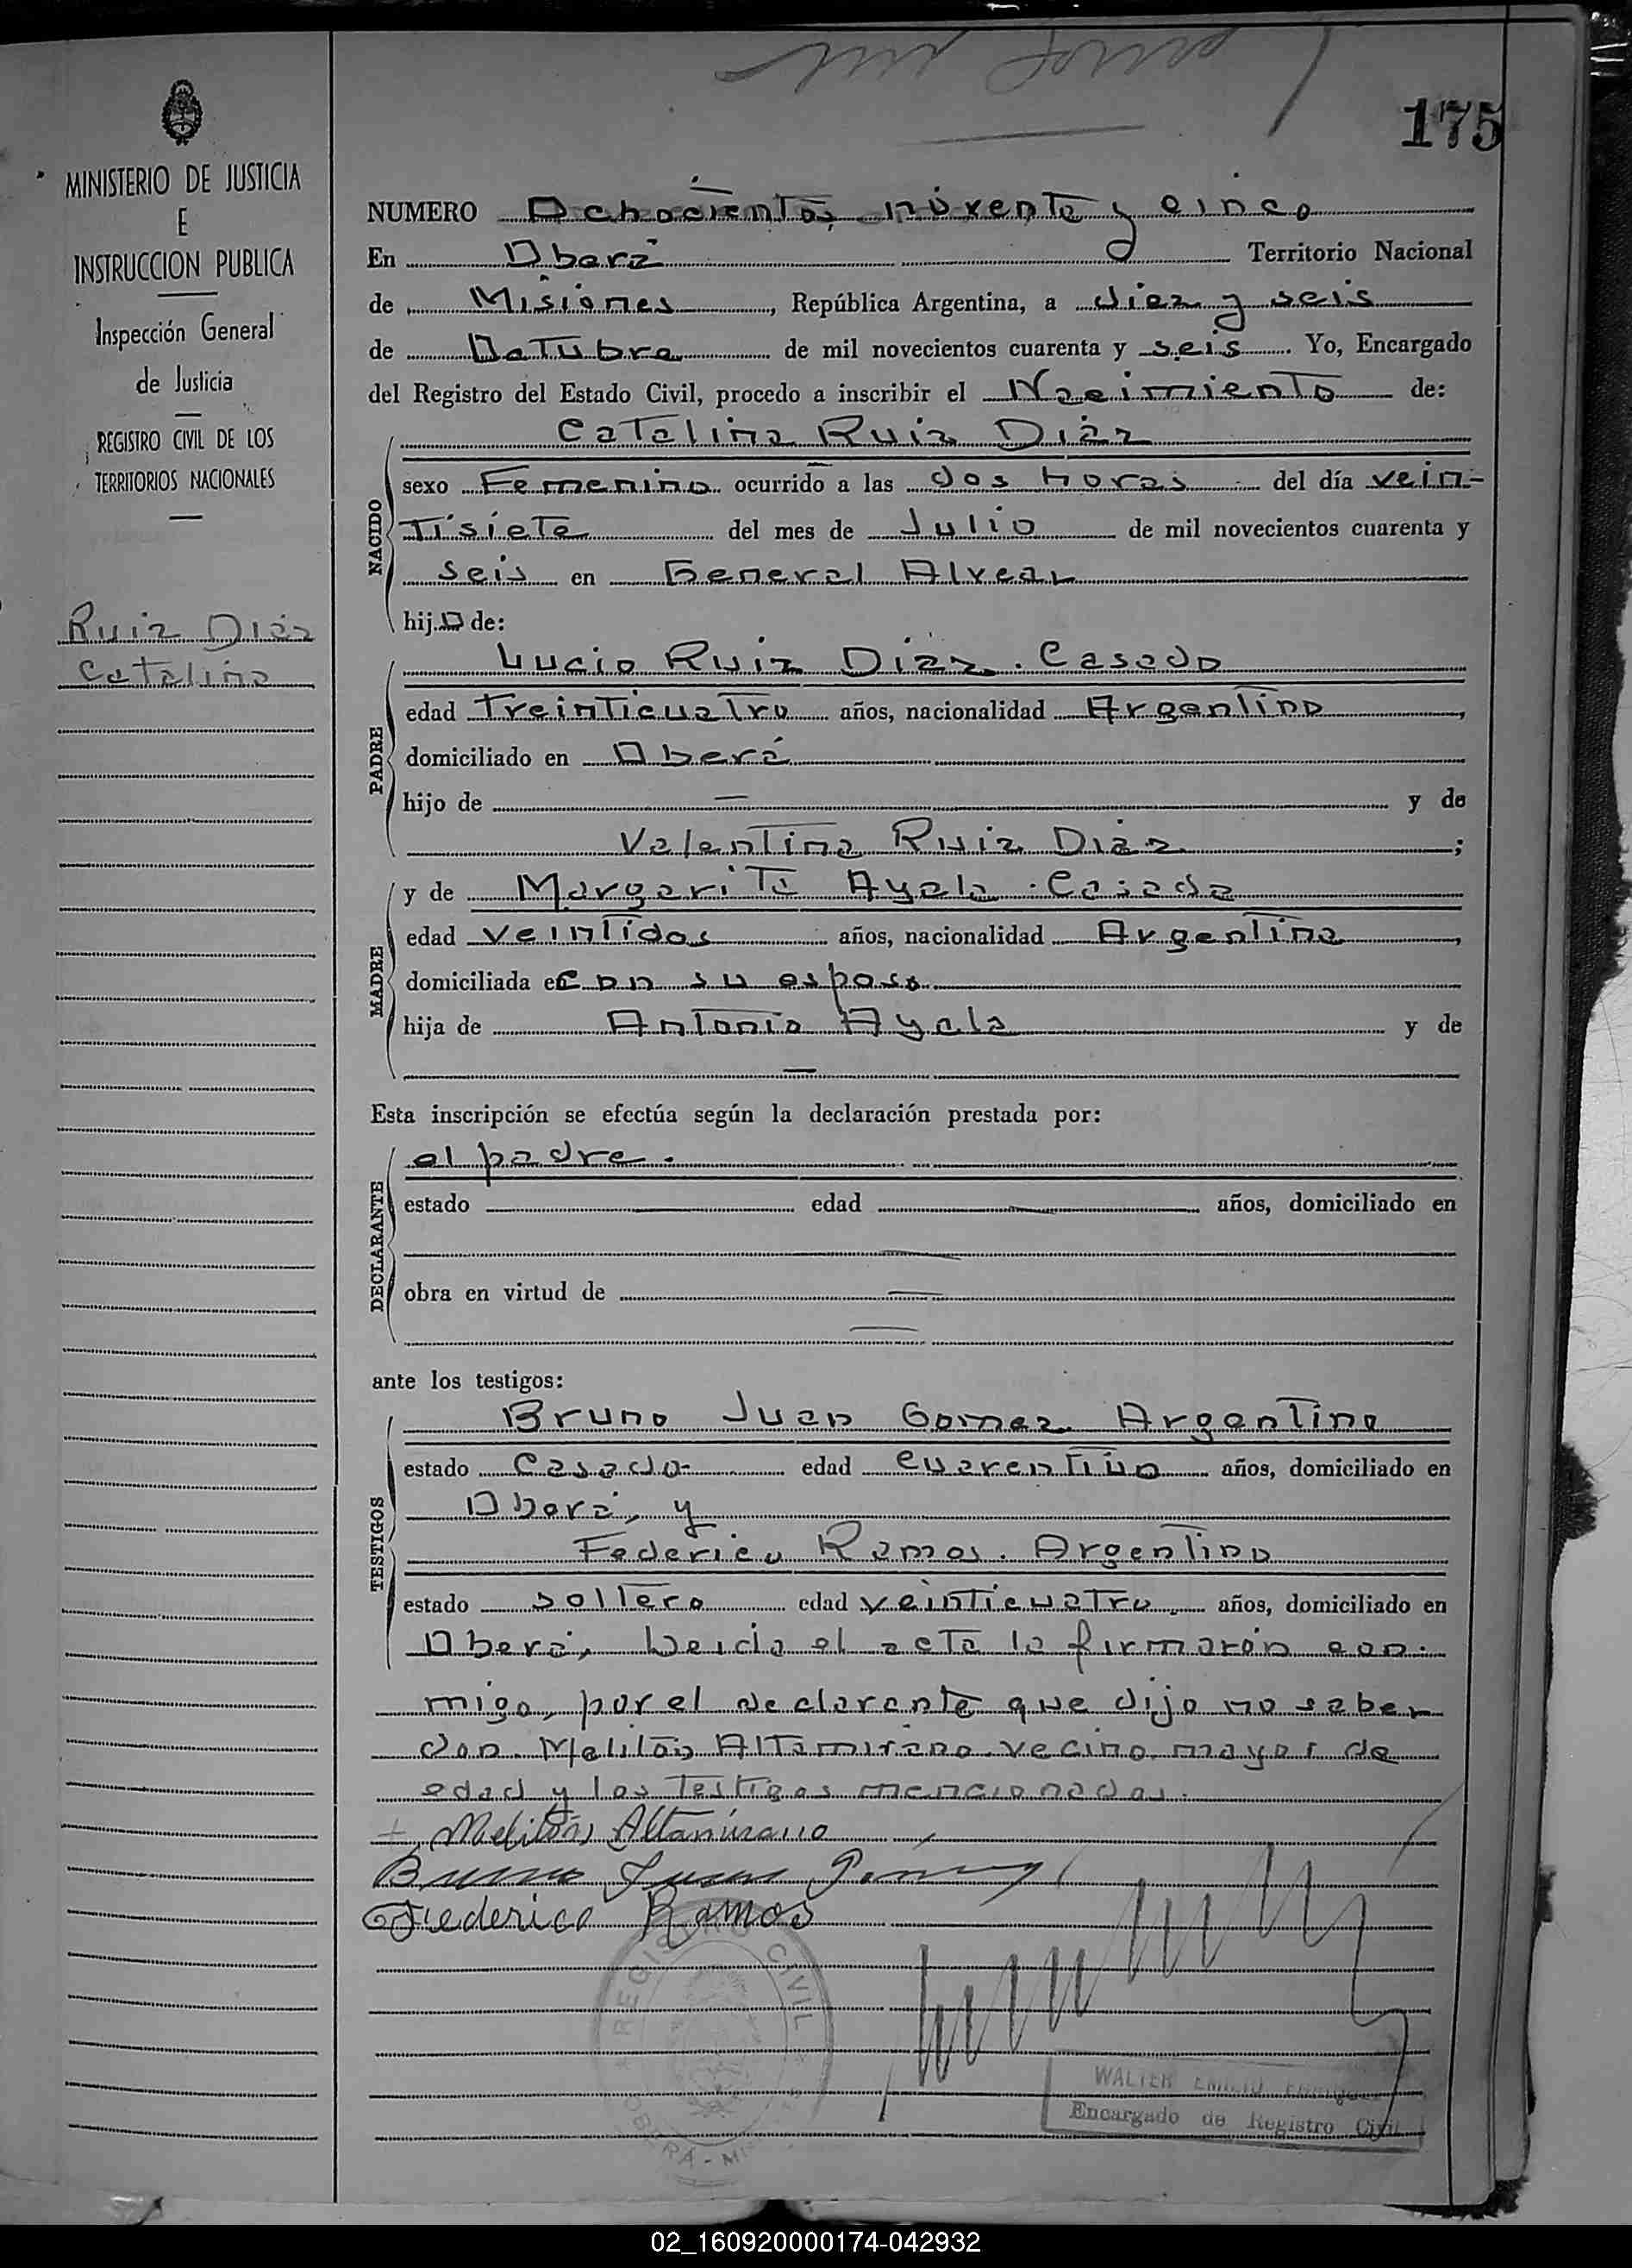 175
MINISTERIO DE JUSTICIA
E
INSTRUCCION PUBLICA
Inspección General
de Justicia
REGISTRO CIVIL DE LOS
TERRITORIOS NACIONALES
Ruiz Diáz
Catalina
NUMERO Ochocientos noventa y cinco
En Oberá Territorio Nacional
de Misiones, República Argentina, a diez y seis
de Octubre de mil novecientos cuarenta y seis. Yo, Encargado
del Registro del Estado Civil, procedo a inscribir el Nacimiento de:
NACIDO
Catalina Ruiz Diáz
sexo Femenino ocurrido a las dos horas del día vein-
tisiete del mes de Julio de mil novecientos cuarenta y
seis en General Alvear
hija de:
PADRE
Lucio Ruiz Diáz. Casado
edad treinticuatro años, nacionalidad Argentino
domiciliado en Oberá
hijo de — y de
Valentina Ruiz Diáz ;
MADRE
y de Margarita Ayala. Casada
edad veintidos años, nacionalidad Argentina
domiciliada en con su esposo
hija de Antonio Ayala y de
—
Esta inscripción se efectúa según la declaración prestada por:
DECLARANTE
el padre.
estado — edad — años, domiciliado en
—
obra en virtud de —
—
ante los testigos:
TESTIGOS
Bruno Juan Gomez Argentino
estado Casado edad cuarentiuno años, domiciliado en
Oberá, y
Federico Ramos. Argentino
estado soltero edad veinticuatro, años, domiciliado en
Oberá, Leida el acta la firmarón con-
migo, por el declarante que dijo no saber
don Melitón Altamirano vecino mayor de
edad y los testigos mencionados.
Melitón Altamirano
Bruno Juan Gomez
Federico Ramos
REGISTRO CIVIL
OBERA - M
WALTER EMILIO
Encargado de Registro Civil
02_160920000174-042932